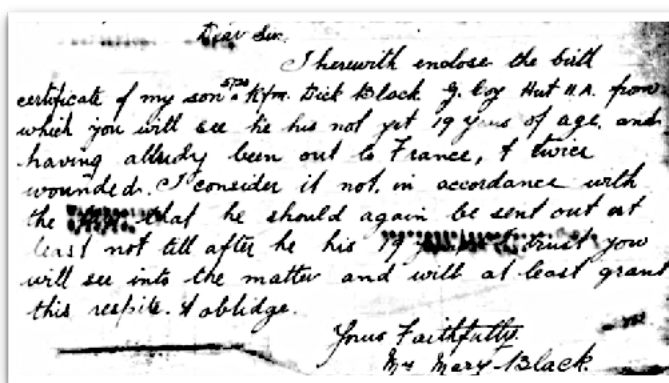 Dear Sir.
I herewith enclose the birth
certificate of my son Rfm. Dick Black G. Coy Hut 11.A. from
which you will see he his not yet 19 years of age. and
having allredy been out to France, & twice
wounded. I consider it not in accordance with
the that he should again be sent out at
least not till after he his 19 trust you
will see into the matter and will at least grant
this respite. & abblidge.
Yours Faithfully.
Mrs Mary Black.